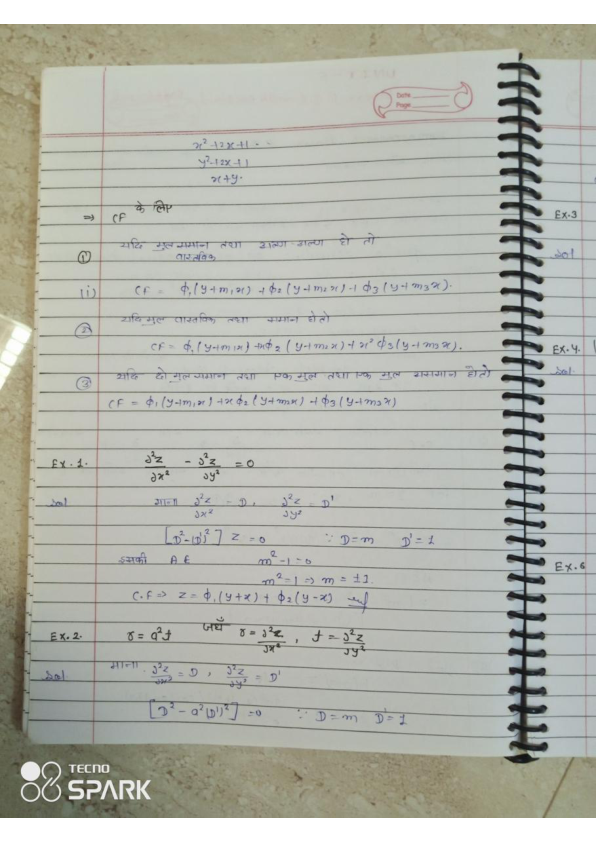 Date
Page
x²+2x+1 - -
y²+2x+1
x+y.
⇒ CF के लिए
① यदि मूल समान तथा अलग अलग हो तो
वास्तविक
(i) CF = ϕ₁(y+m₁x) + ϕ₂(y+m₂x) + ϕ₃(y+m₃x).
② यदि मूल वास्तविक तथा समान हो तो
CF = ϕ₁(y+m₁x) + xϕ₂(y+m₂x) + x²ϕ₃(y+m₃x).
③ यदि दो मूल समान तथा एक मूल तथा एक मूल असमान हो तो
CF = ϕ₁(y+m₁x) + xϕ₂(y+m₂x) + ϕ₃(y+m₃x)
Ex.1. ∂²z/∂x² - ∂²z/∂y² = 0
Sol माना ∂²z/∂x² - D, ∂²z/∂y² = D'
[D²-(D')²] z = 0 ∵ D=m D'=1
इसकी A E m²-1=0
m²=1 ⇒ m = ±1.
C.F ⇒ z = ϕ₁(y+x) + ϕ₂(y-x)
Ex.2. r = a²t जहाँ r = ∂²z/∂x², t = ∂²z/∂y²
Sol. माना ∂²z/∂x² = D, ∂²z/∂y² = D'
[D² - a²(D')²] = 0 ∵ D=m D'=1
Ex.3
Sol
Ex.4.
Sol.
Ex.6
TECNO
SPARK